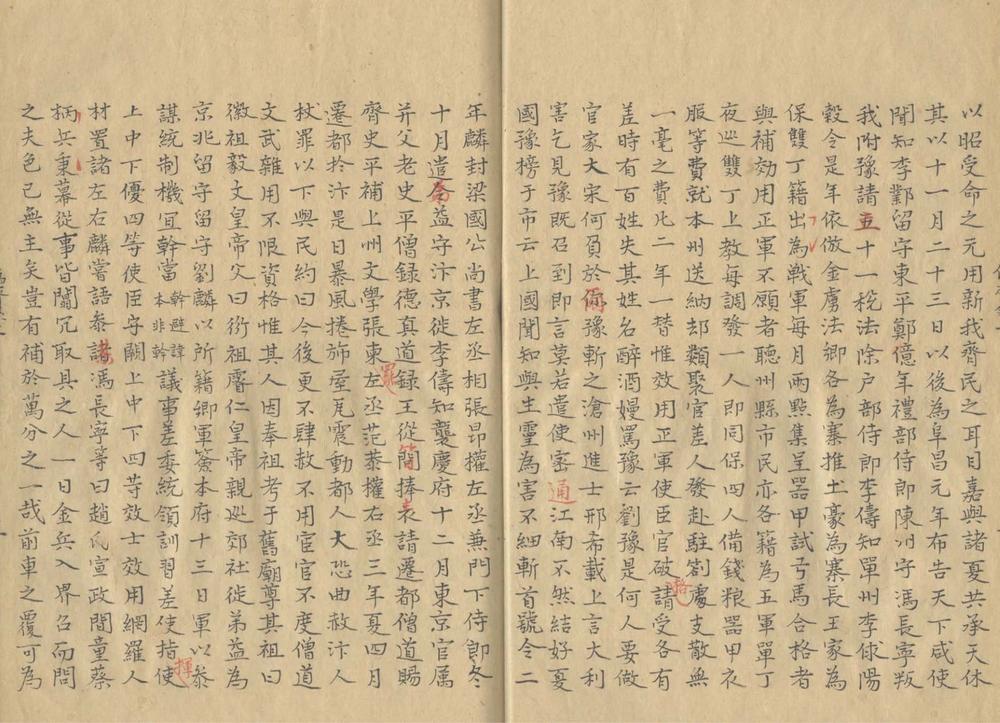 以昭受命之元用新我齊民之耳目嘉與諸憂共承天休
其以十一月二十三日以後為阜昌元年布告天下咸使
聞知李鄴留守東平鄭億年禮部侍郎陳州守馮長寧叛
我附豫請五十一稅法除户部侍郎李儔知單州李俅陽
穀令是年依倣金虜法鄉各為寨推土豪為寨長王家為
保雙丁籍出為戰軍每月兩點集呈器甲試弓馬合格者
與補効用正軍不願者聽州縣市民亦各籍為五軍單丁
夜巡雙丁上教每調發一人即同保四人備錢粮器甲衣
服等費就本州送納却類聚官差人發赴駐劄處支散無
一毫之費比二年一替惟效用正軍使臣官破請受各有
差時有百姓失其姓名醉酒嫚罵豫云劉豫是何人要做
官家大宋何負於爾豫斬之滄州進士邢希載上言大利
害乞見豫既召到即言莫若遣使密通江南不然結好憂
國豫榜于市云上國聞知與生靈為害不細斬首號令二
年麟封梁國公尚書左丞相張昂權左丞兼門下侍郎冬
十月遣益守汴京徙李儔知襲慶府十二月東京官属
并父老史平僧録德真道録王從簡捧表請遷都僧道賜
齊史平補上州文學張東罷左丞范恭權右丞三年夏四月
遷都於汴是日暴風捲斾屋瓦震動都人大恐曲赦汴人
杖罪以下與民約曰今後更不肆赦不用宦官不度僧道
文武雜用不限資格惟其人因奉祖考于舊廟尊其祖曰
徽祖毅文皇帝父曰衍祖睿仁皇帝親巡郊社徙弟益為
京兆留守留守劉麟以所籍鄉軍簽本府十三日軍以泰
謀統制機宜幹當本非幹幹避諱議事差委統領訓習差使指使
上中下優四等使臣守闕上中下四等效士效用網羅人
材置諸左右麟嘗語泰諸馮長寧等曰趙氏宣政間童蔡
柄兵秉幕從事皆闒冗取具之人一日金兵入界召而問
之夫色已無主矣豈有補於萬分之一哉前車之覆可為